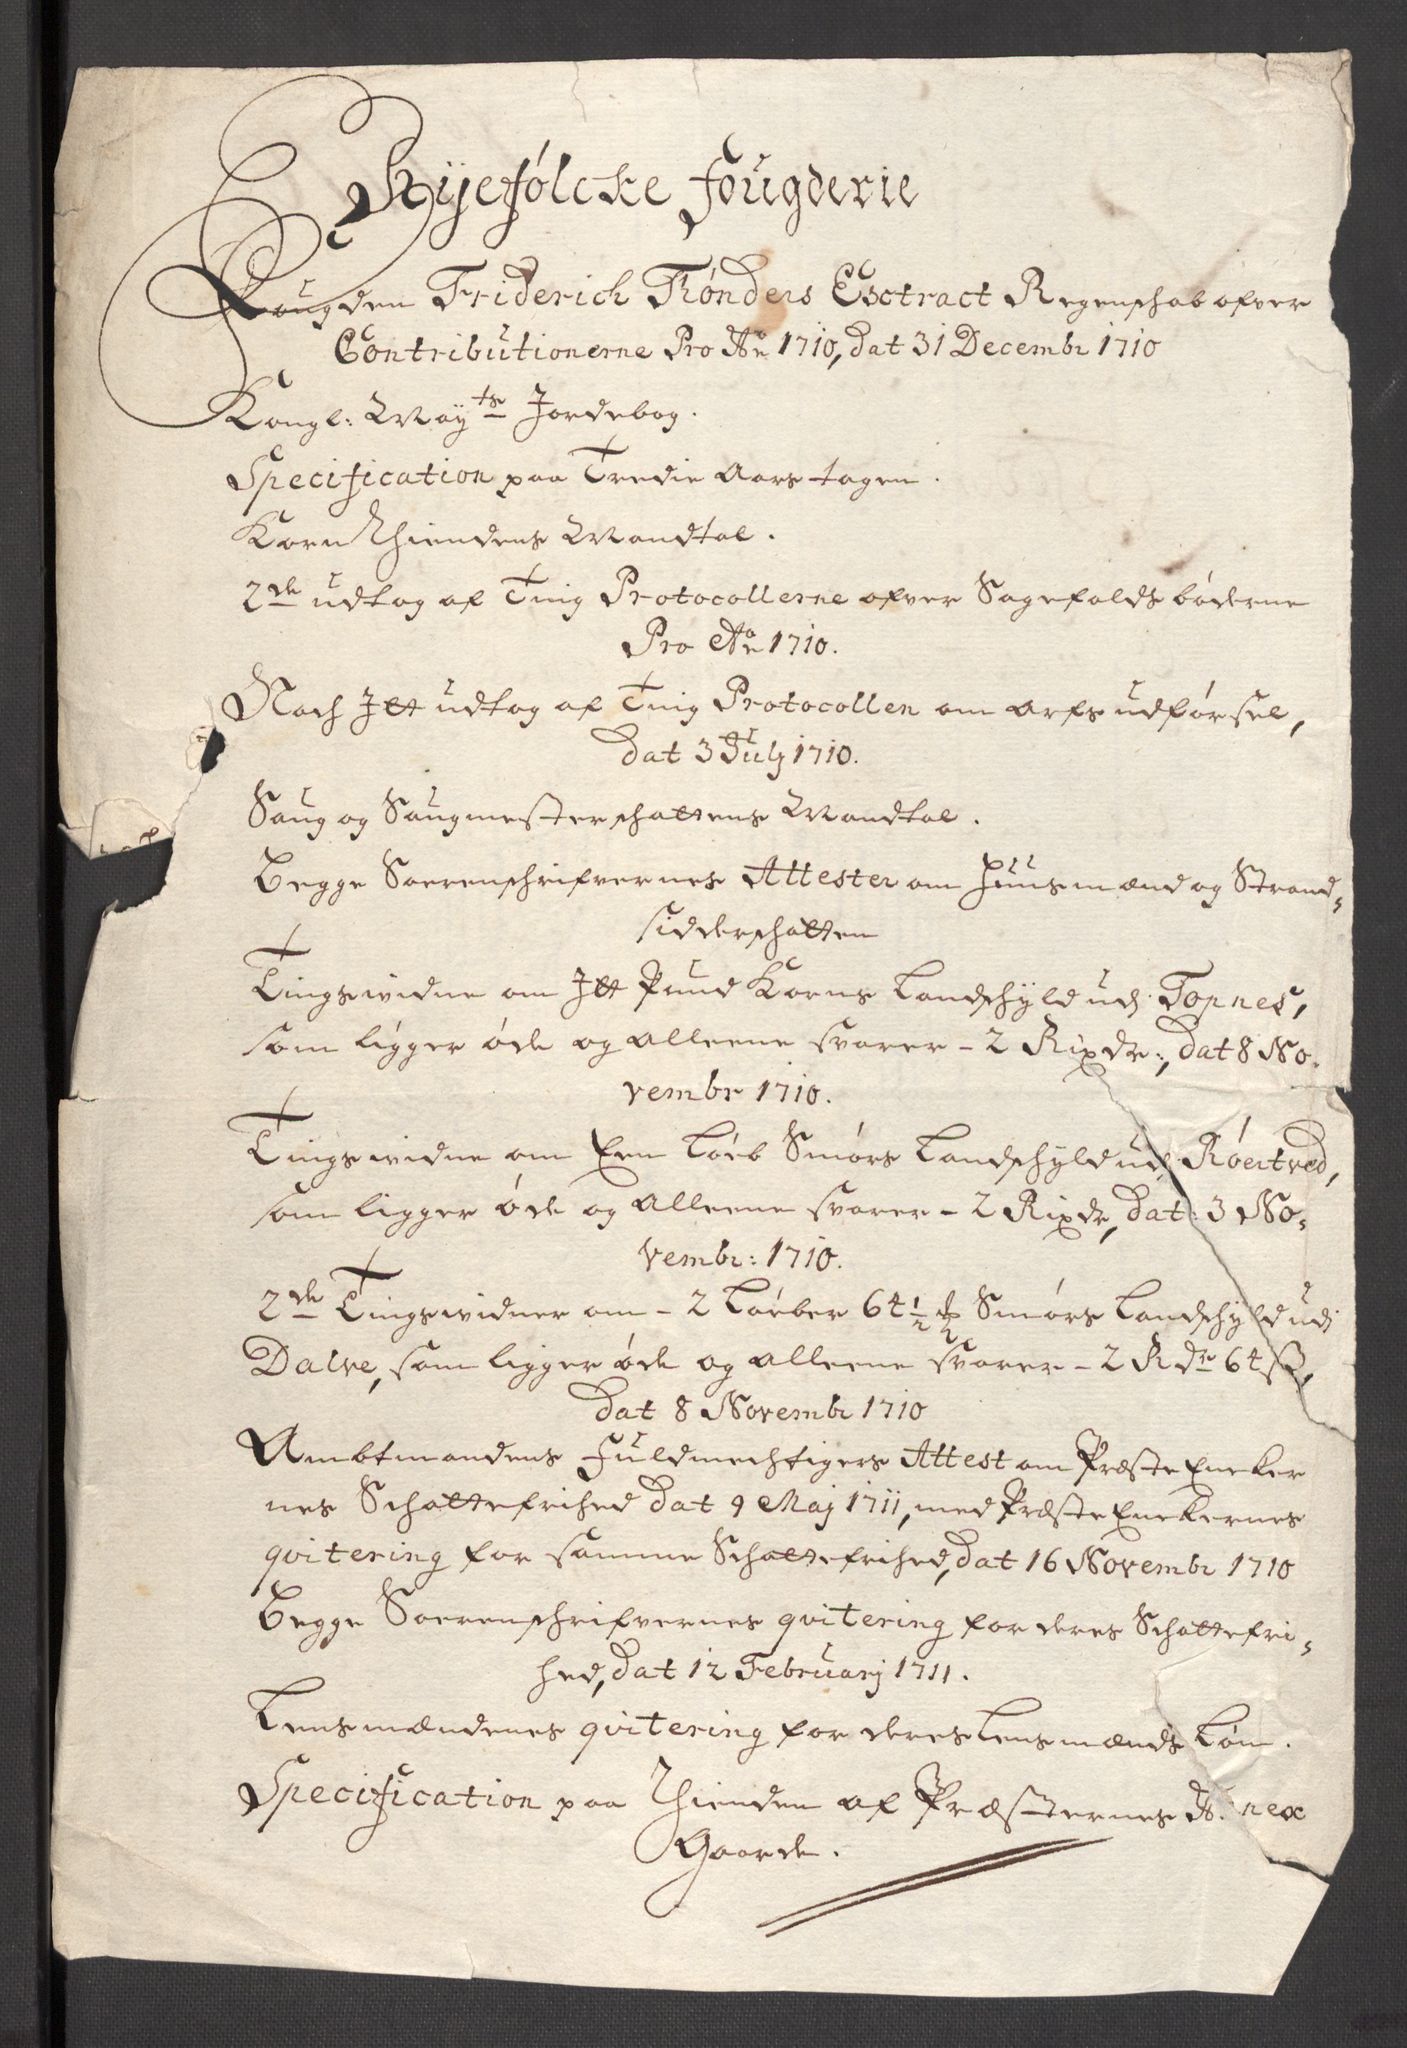 Ryefølcke Fougderie
Fougden Friderich Tønders Exctract Regenschab ofver
Contributionerne Pro Ao 1710, dat 31 Decembr 1710
Kongl: Mayts Jordebog.
Specification paa Tredie Aars tagen.
Korn Thiendens Mandtal.
2de udtog af Ting Protocollerne ofver Sagefalds bøderne
Pro Ao 1710.
Noch Itt udtog af Ting Protocollen om Arfs udførsel,
dat 3 July 1710.
Saug og Saugmester schattens Mandtal.
Begge Sorenschrifvernes Attester om Huusmænd og Strand-
sidderschatten
Tingsvidne om Itt Pund Korns Landschyld udj Topnes,
som ligger øde og alleene svarer - 2 Rixdr:, dat 8 No-
vembr 1710.
Tingsvidne om Een Løeb Smørs Landschyld udj Røertved,
som ligger øde og alleene svarer - 2 Rixdr, dat: 3 No-
vembr: 1710.
2de Tingsvidner om - 2 Løeber 64 1/2 ℔ Smørs Landschyld udj
Dalve, som ligger øde og alleene svarer - 2 Rdr 64 ß,
dat 8 Novembr 1710
Ambtmandens Fuldmechtigers Attest om Præste Encker
nes Schattefrihed dat 9 Maj 1711, med Præste Enckernes
qvitering for samme Schattefrihed, dat 16 Novembr 1710
Begge Sorenschrifvernes qvitering for deres Schattefri-
hed, dat 12 Februarj 1711.
Lensmændenes qvitering for deres Lensmænds Løn.
Specification paa Thienden af Præsternes Annex
Gaarde.